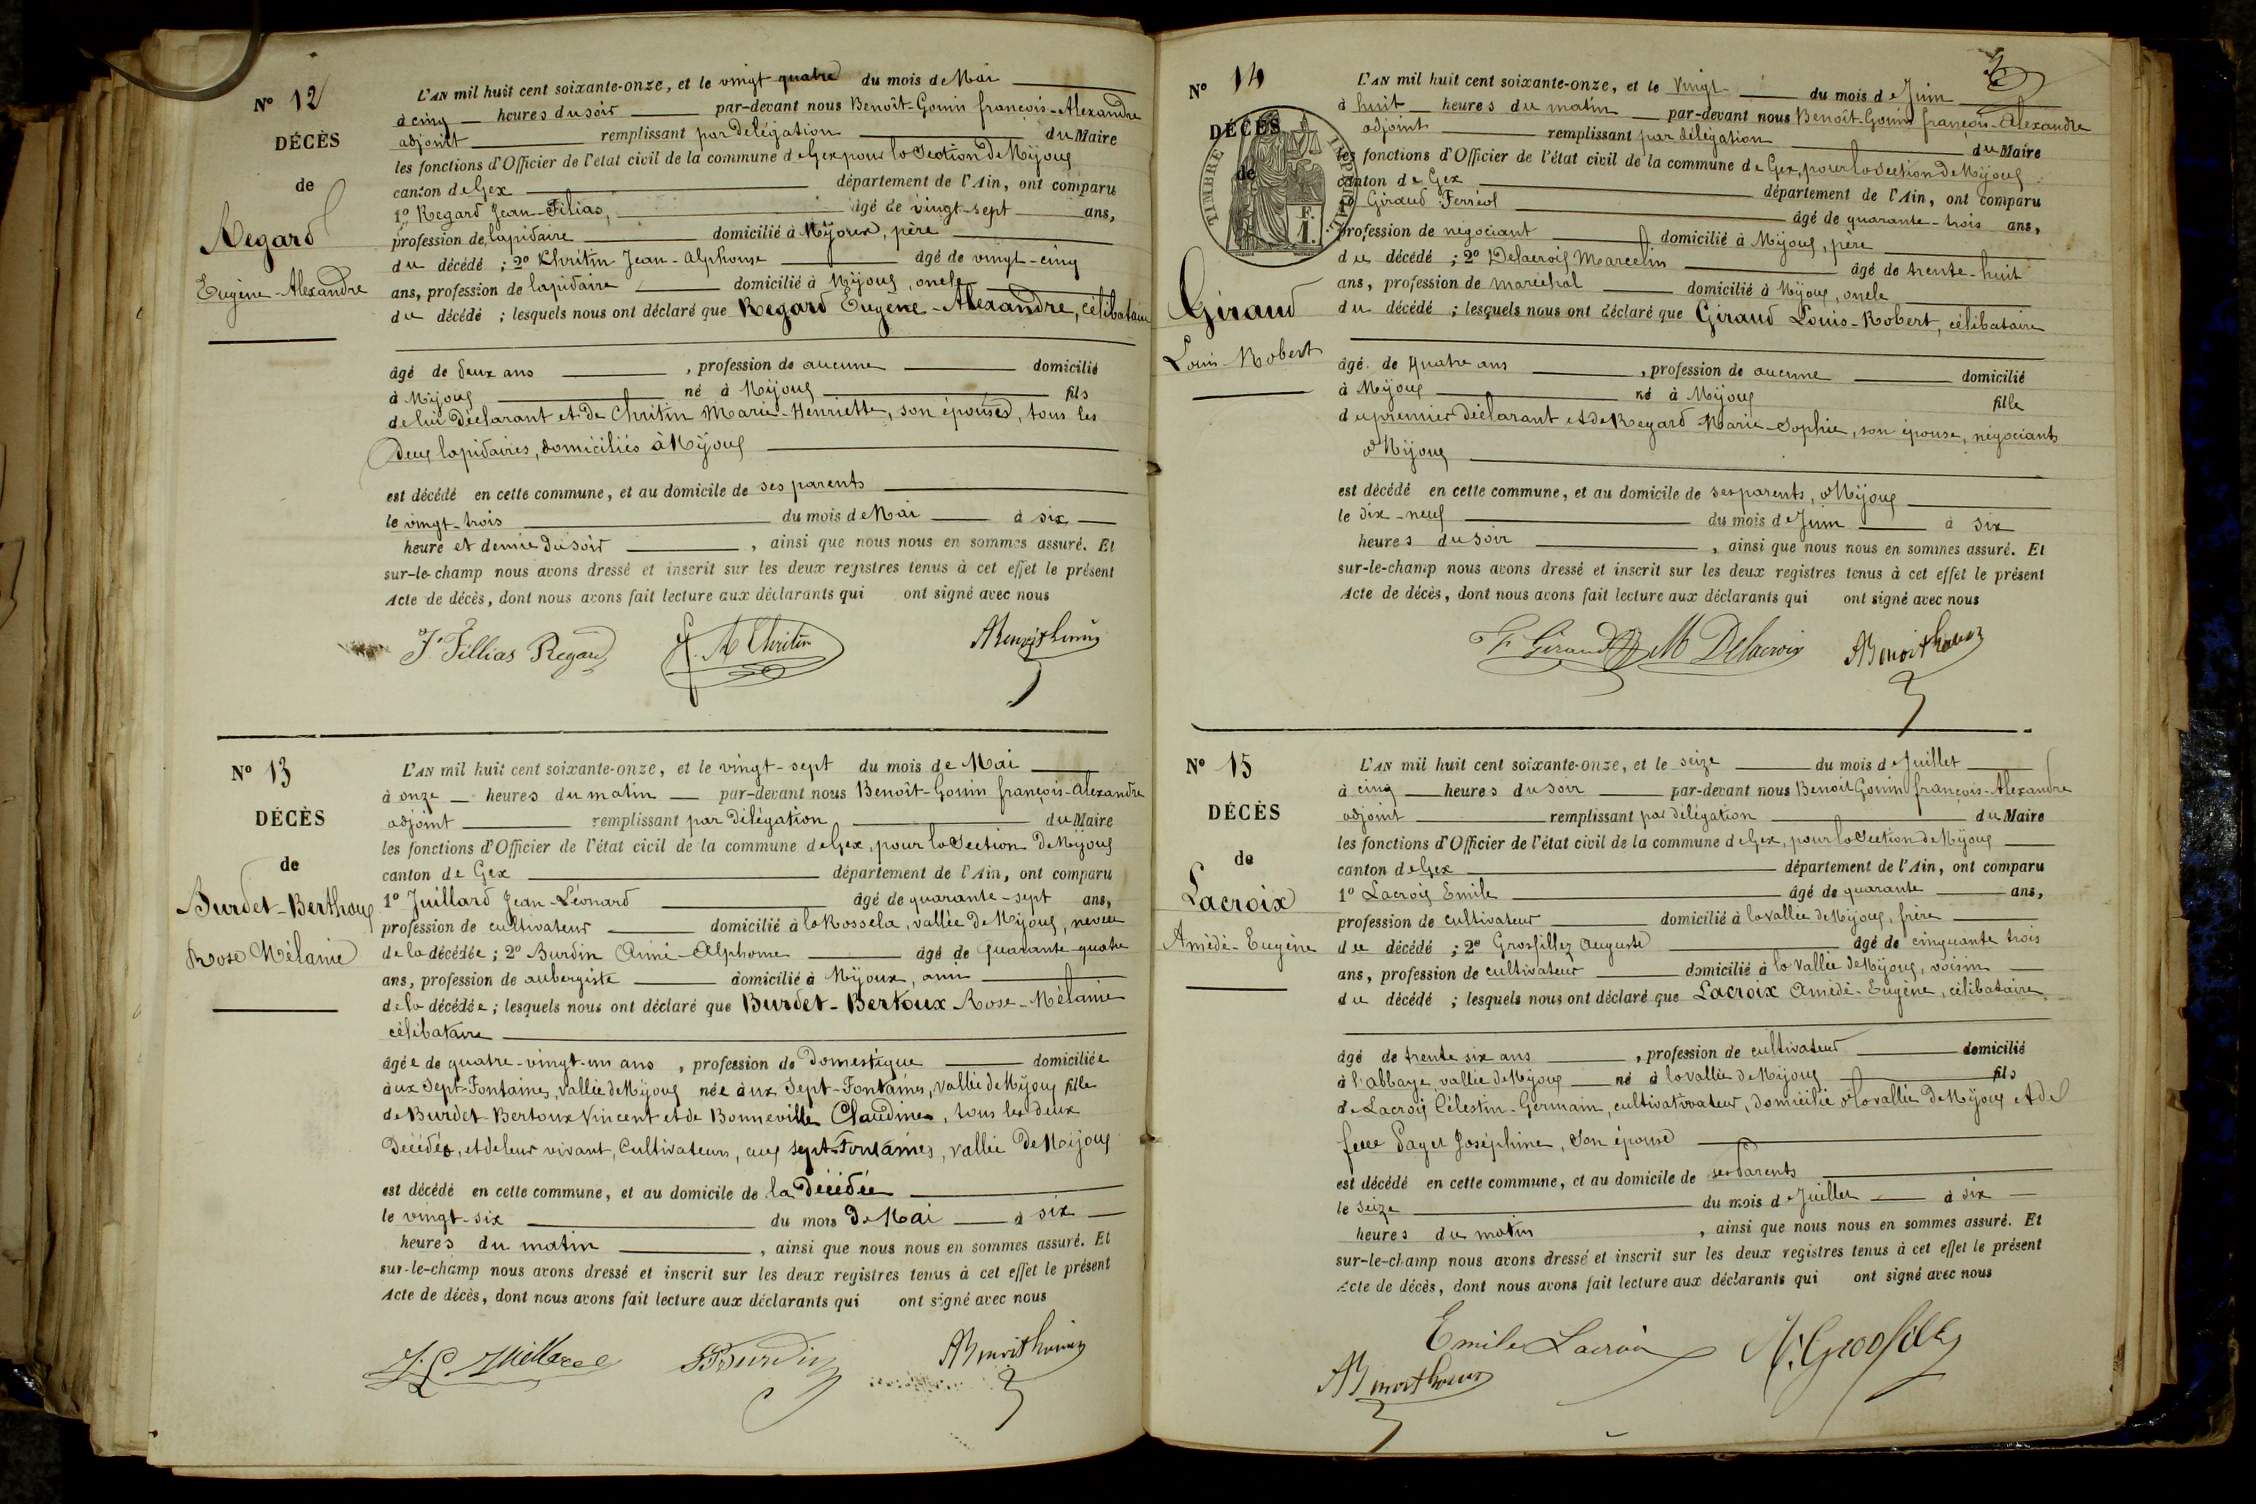 N° 12
DÉCÈS
de
Regard
Eugène-Alexandre
L'AN mil huit cent soixante-onze, et le vingt quatre du mois de Mai
à cinq heures du soir par-devant nous Benoît-Gonin françois-Alexandre
adjoint remplissant par délégation du Maire
les fonctions d'Officier de l'état civil de la commune de Gex pour la Section de Mijoux
canton de Gex département de l'Ain, ont comparu
1° Regard Jean-Filias, âgé de vingt-sept ans,
profession de lapidaire domicilié à Mijoux, père
du décédé ; 2° Chritin Jean-Alphonse âgé de vingt-cinq
ans, profession de lapidaire domicilié à Mijoux, oncle
du décédé ; lesquels nous ont déclaré que Regard Eugène-Alexandre, célibataire
âgé de deux ans , profession de aucune domicilié
à Mijoux né à Mijoux fils
de lui déclarant et de Chritin Marie-Henriette, son épouse, tous les
deux lapidaires, domiciliés à Mijoux
est décédé en cette commune, et au domicile de ses parents
le vingt-trois du mois de Mai à six
heure et demie du soir , ainsi que nous nous en sommes assuré. Et
sur-le-champ nous avons dressé et inscrit sur les deux registres tenus à cet effet le présent
Acte de décès, dont nous avons fait lecture aux déclarants qui ont signé avec nous
J. Fillias Regard A Chritin ABenoitGonin
N° 13
DÉCÈS
de
Burdet-Berthoux
Rose Mélanie
L'AN mil huit cent soixante-onze, et le vingt-sept du mois de Mai
à onze heures du matin par-devant nous Benoît-Gonin françois-Alexandre
adjoint remplissant par délégation du Maire
les fonctions d'Officier de l'état civil de la commune de Gex, pour la Section de Mijoux
canton de Gex département de l'Ain, ont comparu
1° Juillard Jean-Léonard âgé de quarante-sept ans,
profession de cultivateur domicilié à la Rossela, vallée de Mijoux, neveu
de la décédée ; 2° Burdin Aimé-Alphonse âgé de quarante-quatre
ans, profession de aubergiste domicilié à Mijoux, ami
de la décédée ; lesquels nous ont déclaré que Burdet-Bertoux Rose-Mélanie
célibataire
âgée de quatre-vingt-un ans , profession de Domestique domiciliée
àux Sept-Fontaines, vallée de Mijoux née àux Sept-Fontaines, vallée de Mijoux fille
de Burdet-Bertoux Vincent et de Bonneville Claudine, tous les deux
décédés, et de leur vivant, Cultivateurs, aux sept-Fontaines, vallée de Mijoux
est décédé en cette commune, et au domicile de la Décédée
le vingt-six du mois de Mai à six
heures du matin , ainsi que nous nous en sommes assuré. Et
sur-le-champ nous avons dressé et inscrit sur les deux registres tenus à cet effet le présent
Acte de décès, dont nous avons fait lecture aux déclarants qui ont signé avec nous
J. L Juillard Burdin ABenoitGonin
N° 14
DÉCÈS
de
TIMBRE IMPÉRIAL
1 F.
Giraud
Louis-Robert
L'AN mil huit cent soixante-onze, et le Vingt du mois de Juin
à huit heures du matin par-devant nous Benoît-Gonin françois-Alexandre
adjoint remplissant par délégation du Maire
les fonctions d'Officier de l'état civil de la commune de Gex, pour la Section de Mijoux
canton de Gex département de l'Ain, ont comparu
1° Giraud Ferréol âgé de quarante-trois ans,
profession de négociant domicilié à Mijoux, père
du décédé ; 2° Delacroix Marcelin âgé de trente-huit
ans, profession de maréchal domicilié à Mijoux, oncle
du décédé ; lesquels nous ont déclaré que Giraud Louis-Robert, célibataire
âgé de quatre ans , profession de aucune domicilié
à Mijoux né à Mijoux fille
du premier déclarant et de Regard Marie-Sophie, son épouse, négociants
à Mijoux
est décédé en cette commune, et au domicile de ses parents, à Mijoux
le dix-neuf du mois de Juin à six
heures du soir , ainsi que nous nous en sommes assuré. Et
sur-le-champ nous avons dressé et inscrit sur les deux registres tenus à cet effet le présent
Acte de décès, dont nous avons fait lecture aux déclarants qui ont signé avec nous
F. Giraud M Delacroix ABenoitGonin
N° 15
DÉCÈS
de
Lacroix
Amédé-Eugène
L'AN mil huit cent soixante-onze, et le seize du mois de Juillet
à cinq heures du soir par-devant nous Benoit Gonin françois-Alexandre
adjoint remplissant par délégation du Maire
les fonctions d'Officier de l'état civil de la commune de Gex, pour la Section de Mijoux
canton de Gex département de l'Ain, ont comparu
1° Lacroix Emile âgé de quarante ans,
profession de cultivateur domicilié à la vallée de Mijoux, frère
du décédé ; 2° Grosfillez Auguste âgé de cinquante trois
ans, profession de cultivateur domicilié à la vallée de Mijoux, voisin
du décédé ; lesquels nous ont déclaré que Lacroix Amédé-Eugène, célibataire
âgé de trente six ans , profession de cultivateur domicilié
à l'abbaye, vallée de Mijoux né à la vallée de Mijoux fils
de Lacroix Célestin-Germain, cultivativateur, domicilié à la vallée de Mijoux et de
feue Paget Joséphine, son épouse
est décédé en cette commune, et au domicile de ses Parents
le seize du mois de Juillet à six
heures du matin , ainsi que nous nous en sommes assuré. Et
sur-le-champ nous avons dressé et inscrit sur les deux registres tenus à cet effet le présent
Acte de décès, dont nous avons fait lecture aux déclarants qui ont signé avec nous
Emile Lacroix A. Grosfillez
ABenoitGonin